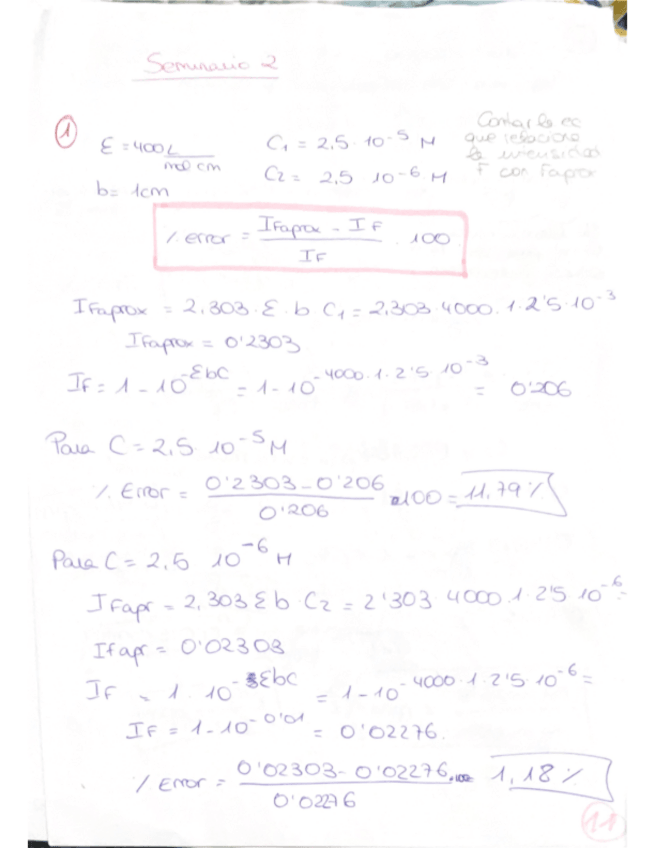 Seminario 2
1
ε = 400 L / mol cm
C₁ = 2,5 · 10⁻⁵ M
b = 1cm
C₂ = 2,5 10⁻⁶ M
que relacione
la intensidad
F con Faprox
% error = (IFaprox - IF) / IF · 100
IFaprox = 2,303 · ε · b C₁ = 2,303 · 4000 · 1 · 2'5 · 10⁻³
IFaprox = 0'2303
IF = 1 - 10^-εbC = 1 - 10^-4000·1·2'5 10⁻³ = 0'206
Para C = 2,5 10⁻⁵ M
% Error = (0'2303 - 0'206) / 0'206 · 100 = 11,79 %
Para C = 2,5 10⁻⁶ M
IFapr = 2,303 ε b · C₂ = 2'303 · 4000 · 1 · 2'5 10⁻⁶
IFapr = 0'02303
IF = 1 · 10^-εbC = 1 - 10^-4000·1·2'5·10⁻⁶ =
IF = 1 - 10^-0'01 = 0'02276.
% Error = (0'02303 - 0'02276) / 0'02276 · 100 = 1,18 %
11